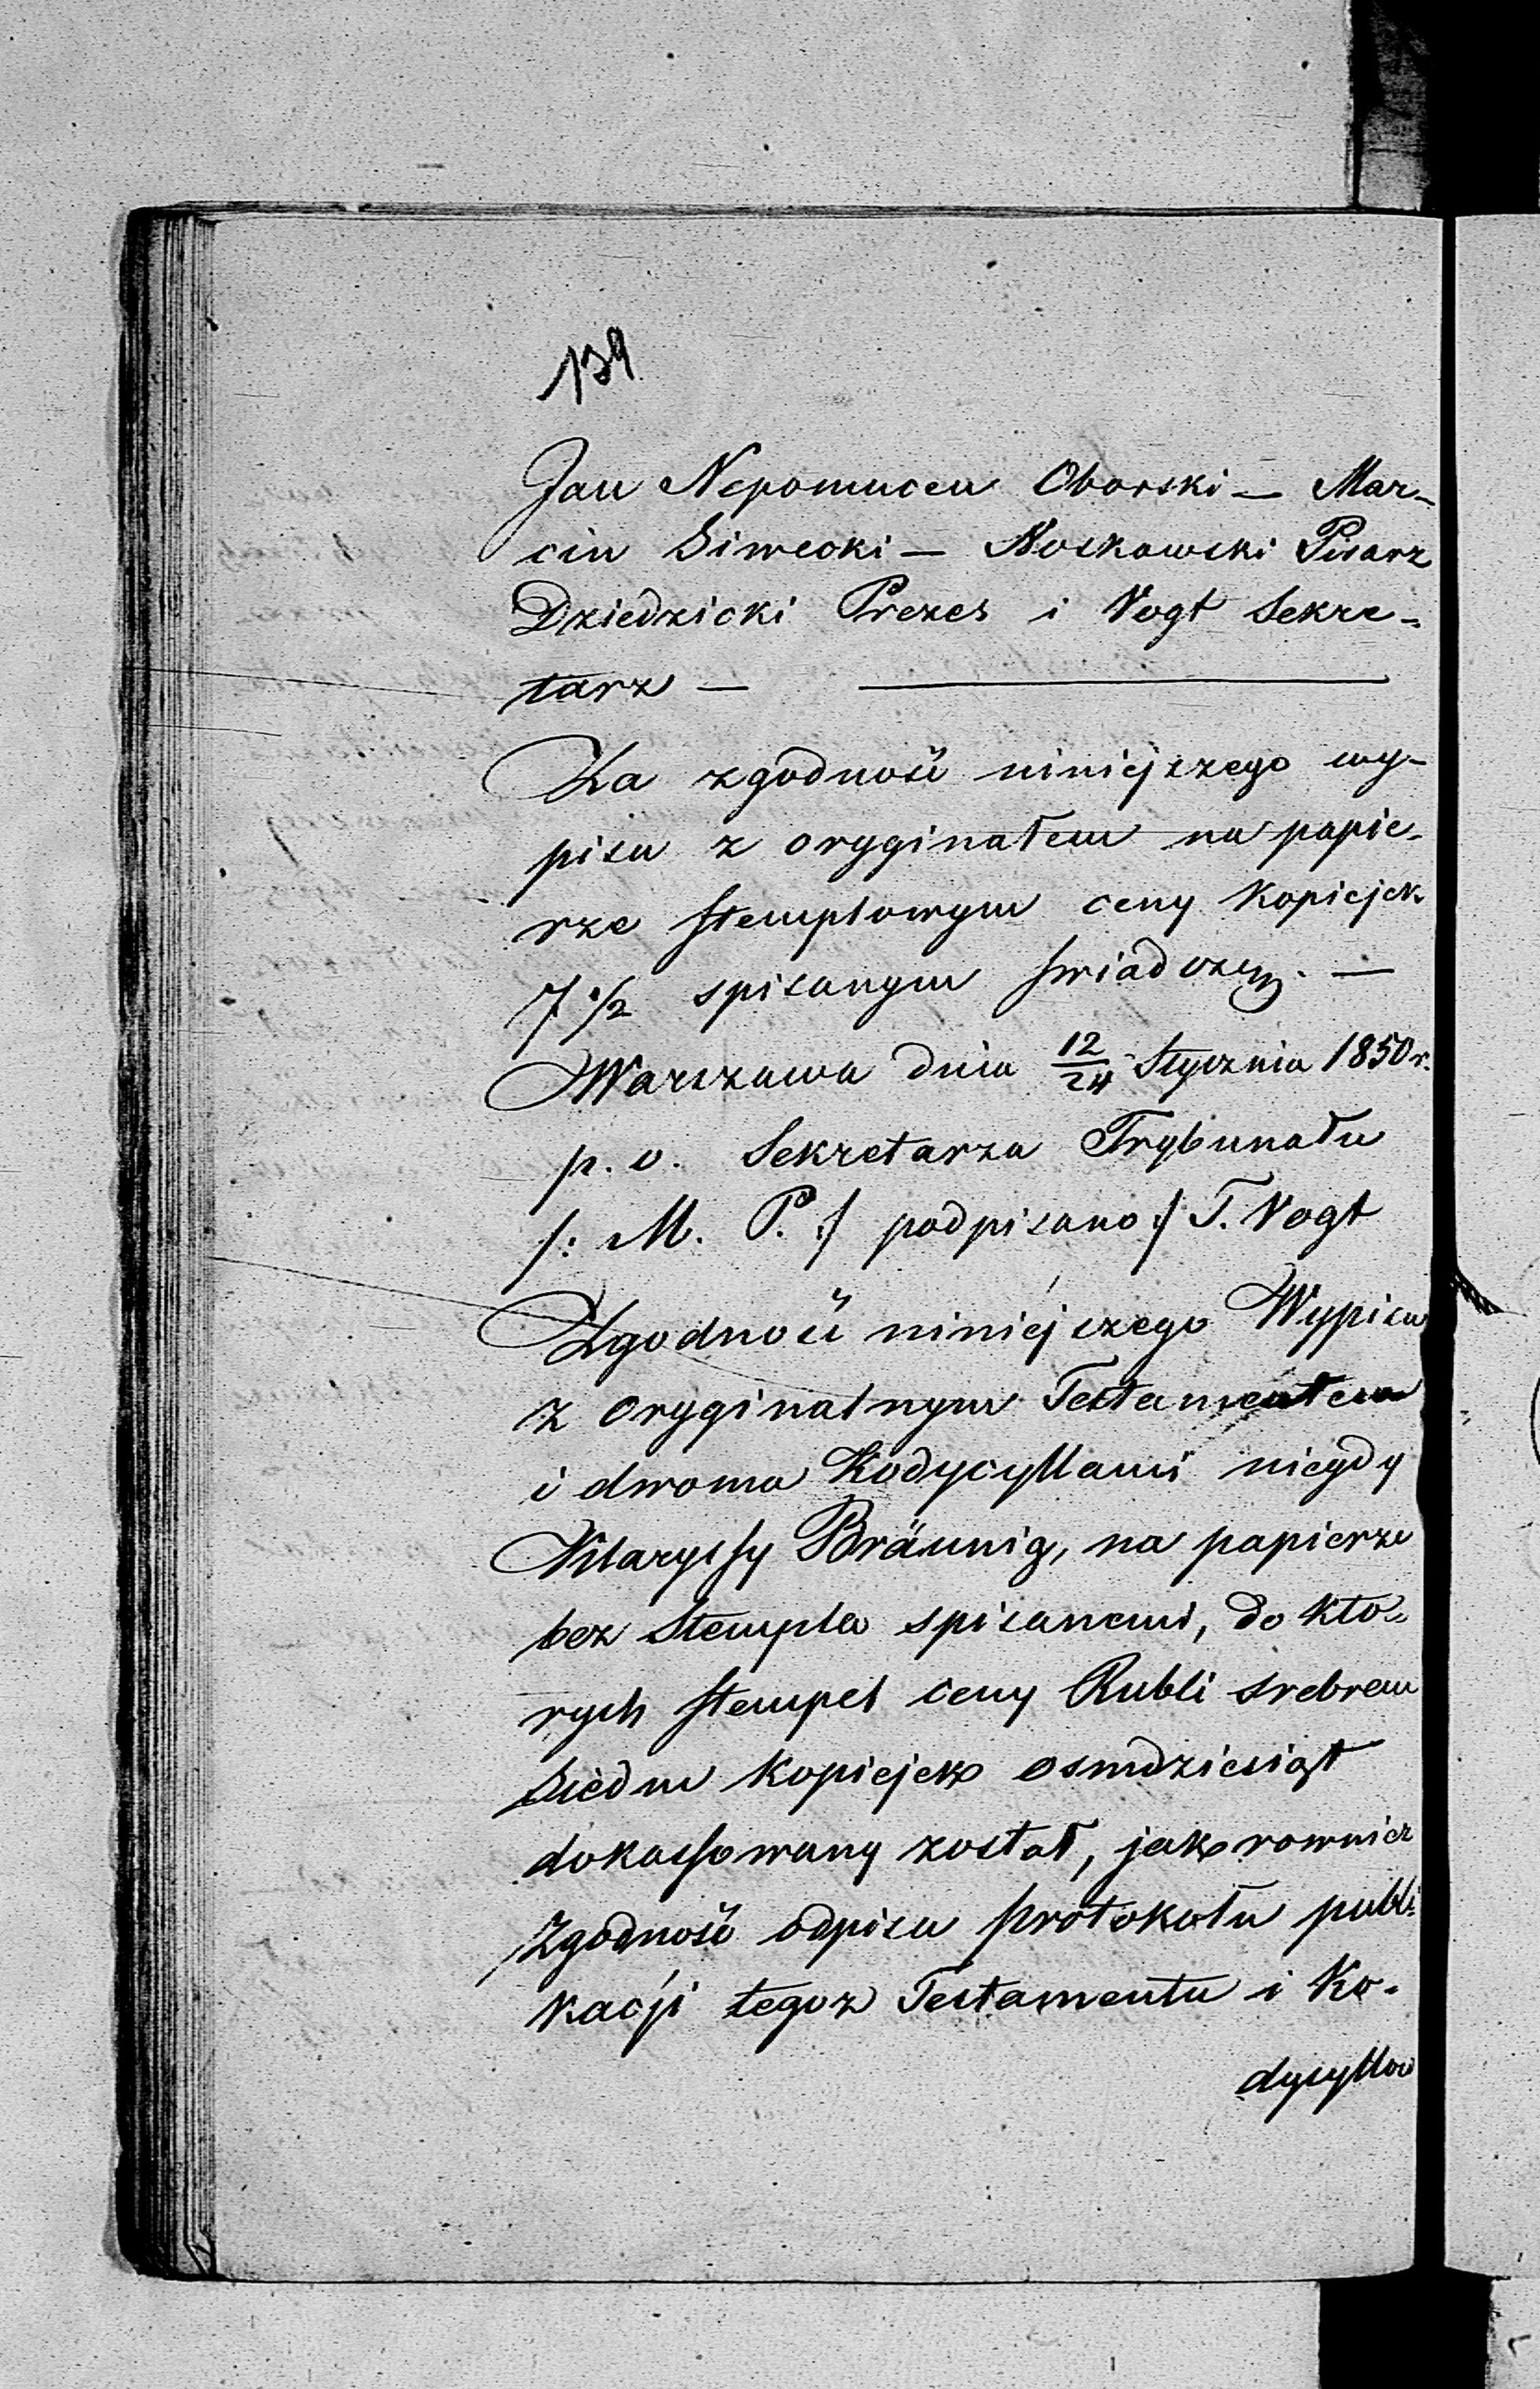 139
Jan Nepomucen Oborski — Mar-
cin Siwecki — Noskowski Pisarz
Dziedzicki Prezes i Vogt Sekre-
tarz —
Za zgodność niniejszego wy-
pisu z oryginałem na papie-
rze stemplowym ceny kopiejek
7 1/2 spisanym świadczę. —
Warszawa dnia 12/24 Stycznia 1850 r.
p. o. Sekretarza Trybunału
/: M. P. :/ podpisano :/ T. Vogt
Zgodność niniejszego Wypisu
z oryginalnym Testamentem
i dwoma Kodycyllami niegdy
Klaryssy Bräunig, na papierze
bez Stempla spisanemi, do kto-
rych stempel ceny Rubli srebrem
siedm kopiejek osmdziesiąt
dokassowany został, jak rownież
zgodność odpisu protokołu publi
kacji tegoż Testamentu i Ko-
dycyllow